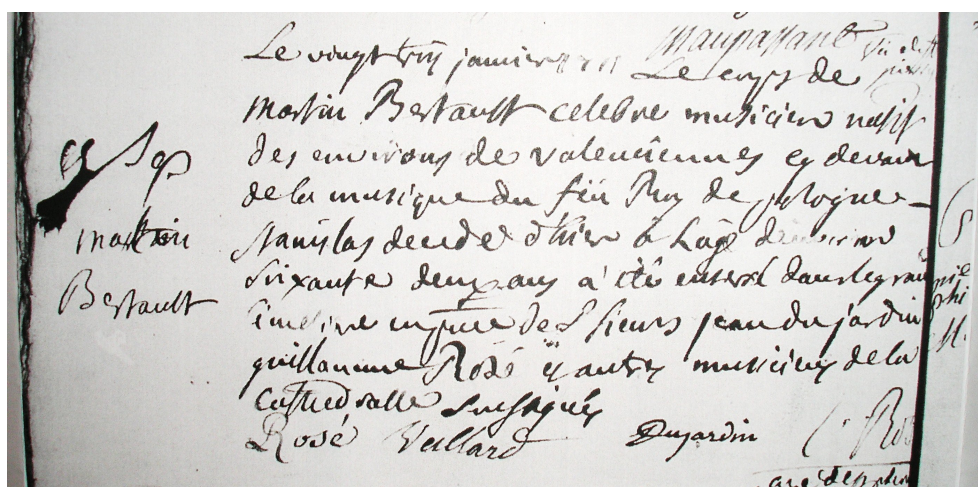 Maupassant
Le vingt trois janvier Le corps de
Martin Bertault celebre musicien natif
des environs de valenciennes cy devant
de la musique du feu Roy de pologne
Sep
stanislas decedé d'hier à Lage d'environ
Martin
soixante deux ans à été enterré dans le grand
Bertault
cimetiere en presence de S ieurs jean dujardin
guillaume Rosé et autres musiciens de la
Cathedralle soussignés
Rosé Vallard Dujardin